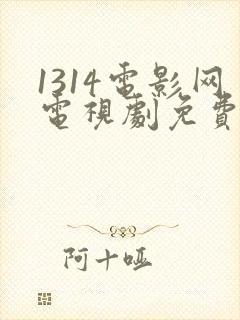 1314電影网
電視劇免費
阿十哑